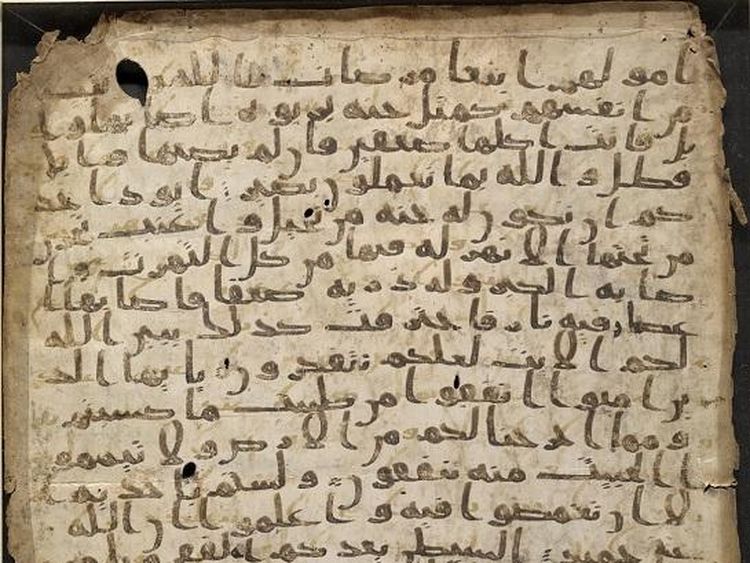 امولهم ابتغا مرضات الله وتثبيتا
من انفسهم كمثل جنه بربوه اصابها وا
بل فاتت اكلها ضعفين فان لم يصبها وابل
فطل و الله بما تعملون بصير ايود احد
كم ان تكون له جنه من نخيل و اعنب تجري
من تحتها الانهر له فيها من كل الثمرت و ا
صابه الكبر وله ذريه ضعفا فاصابها ا
عصار فيه نار فاحترقت كذلك يبين الله
لكم الايت لعلكم تتفكرون يايها الذ
ين امنوا انفقوا من طيبت ما كسبتم
ومما اخرجنا لكم من الارض ولا تيمموا
ا الخبيث منه تنفقون ولستم باخذيه ا
لا ان تغمضوا فيه و اعلموا ان الله
غني حميد الشيطن يعدكم الفقر ويامر